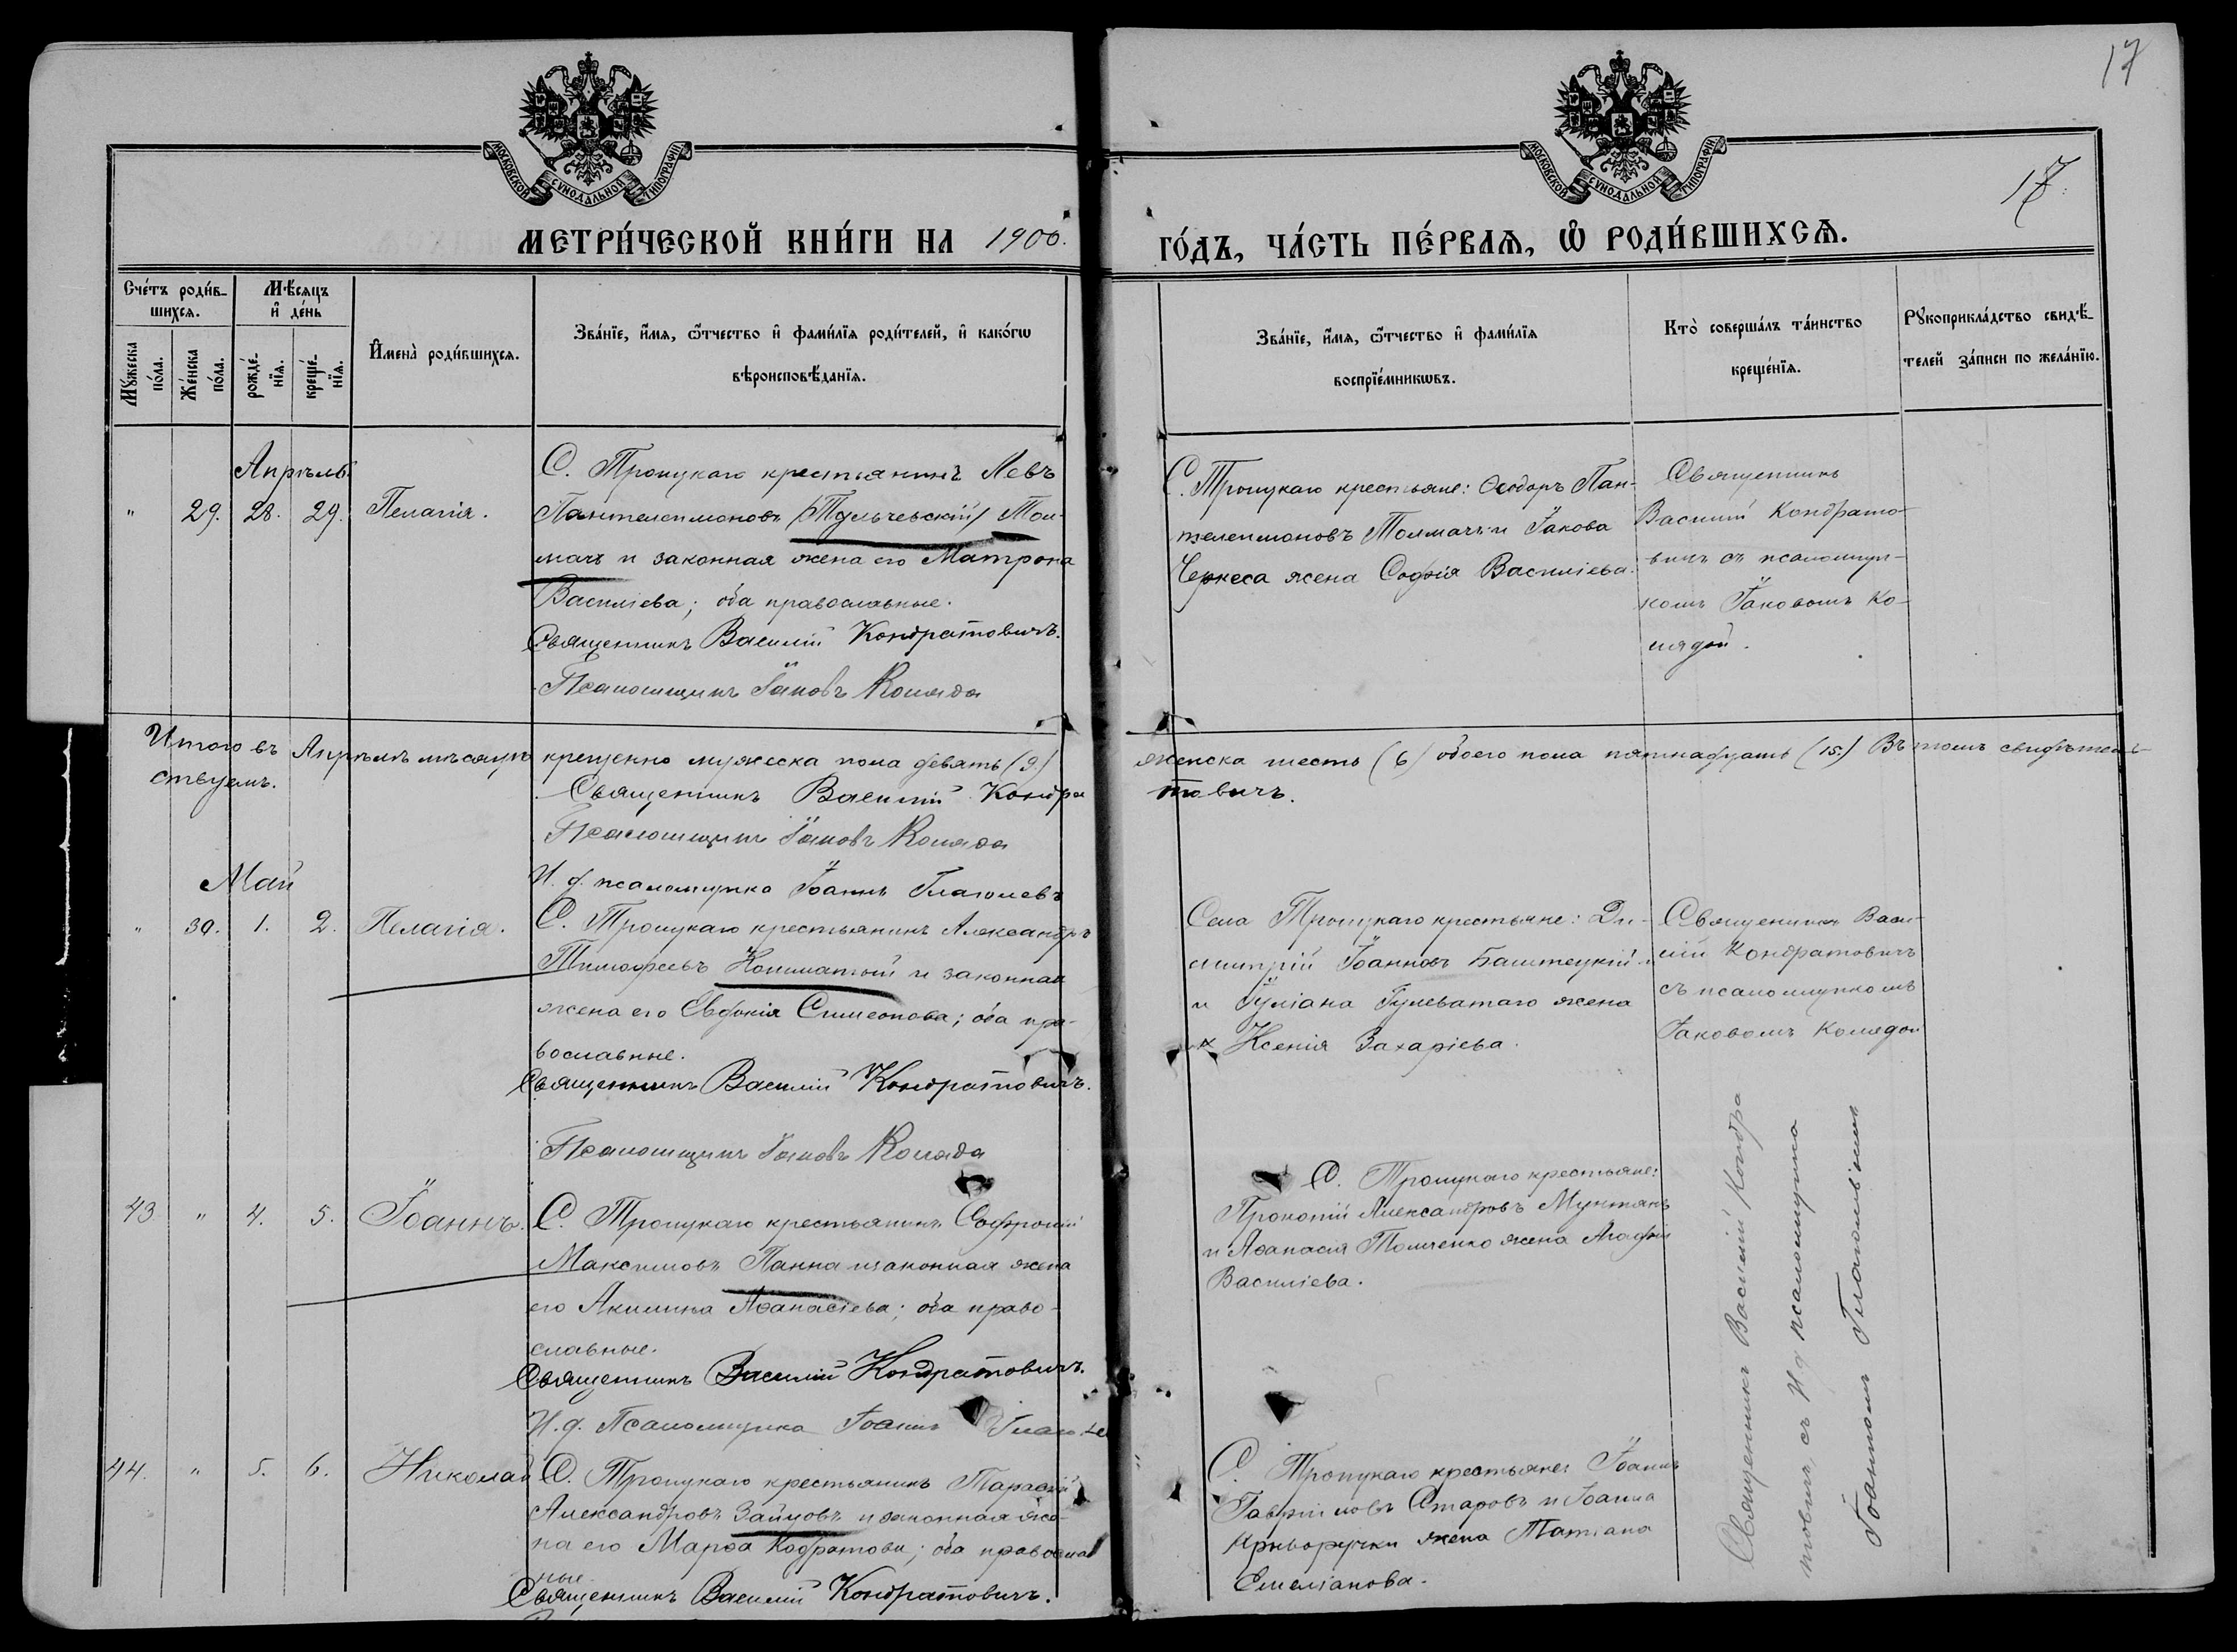 17
МОСКОВСКОЙ СУНОДАЛЬНОЙ ТИПОГРАФІИ
МОСКОВСКОЙ СУНОДАЛЬНОЙ ТИПОГРАФІИ
17.
МЕТРИ́ЧЕСКОЙ КНИ́ГИ НА 1900.
ГО́ДЪ, ЧА́СТЬ ПЕ́РВАѦ, Ѡ РОДИ́ВШИХСѦ.
Сче́тъ роди́в-
шихсѧ.
Мꙋ́жеска по́ла.
Же́нска по́ла.
Мѣ́сѧцъ
и҆ де́нь
рожде́-
нїѧ.
креще́-
нїѧ.
И҆мена̀ роди́вшихсѧ.
Зва́нїе, и҆́мѧ, ѻ҆́тчество и҆ фами́лїѧ роди́телей, и҆ како́гѡ
вѣроисповѣ́данїѧ.
Зва́нїе, и҆́мѧ, ѻ҆́тчество и҆ фами́лїѧ
воспрїе́мникѡвъ.
Кто̀ соверша́лъ та́инство
креще́нїѧ.
Рꙋкоприкла́дство свидѣ́-
телей за́писи по жела́нїю.
Апрѣль.
" 29. 28. 29. Пелагія.
С. Троицкаго крестьянинъ Левъ
Пантелеимоновъ /Тульчевскій/ Тол-
мачъ и законная жена его Матрона
Василіева; оба православные.
Священникъ Василій Кондратовичъ.
Псаломщикъ Іаковъ Коляда
С. Троицкаго крестьяне: Ѳеодоръ Пан-
телеимоновъ Толмачъ и Іакова
Черкеса жена Софія Василіева.
Священникъ
Василій Кондрато-
вичъ съ псаломщи-
комъ Іаковомъ Ко-
лядой.
Итого въ Апрѣлѣ мѣсяцѣ крещенно мужеска пола девять (9) женска шесть (6) обоего пола пятнадцать (15.) Въ томъ свидѣтель-
ствуемъ.
Священникъ Василій Кондратовичъ.
Псаломщикъ Іаковъ Коляда
И. д. псаломщика Іоаннъ Глаголевъ
Май
" 30. 1. 2. Пелагія.
С. Троицкаго крестьянинъ Александръ
Тимофеевъ и законная
жена его Евдокія Симеонова; оба пра-
вославные.
Священникъ Василій Кондратовичъ.
Псаломщикъ Іаковъ Коляда
Села Троицкаго крестьяне: Ди-
митрій Іоанновъ Баштецкій
и Іуліана Гулеватаго жена
Ксенія Захаріева.
Священникъ Васи-
лій Кондратовичъ
съ псаломщикомъ
Іаковомъ Колядой
43 " 4. 5. Іоаннъ.
С. Троицкаго крестьянинъ Софроній
Максимовъ Панна и законная жена
его Акилина Аѳанасіева; оба право-
славные.
Священникъ Василій Кондратовичъ.
И. д. Псаломщика Іоаннъ
С. Троицкаго крестьяне:
Прокопій Александровъ Мунтянъ
и Аѳанасія Томченко жена Агафія
Василіева.
44. " 5. 6. Николай
С. Троицкаго крестьянинъ Тарасій
Александровъ Зайцовъ и законная же-
на его Марѳа Кодратова; оба православ
ные.
Священникъ Василій Кондратовичъ.
С. Троицкаго крестьяне: Іоаннъ
Гавріиловъ Старовъ и Іоанна
Криворучки жена Татіана
Емеліанова.
Священникъ Василій Кондра
товичъ, съ И д псаломщика
Іоанномъ Глаголевымъ